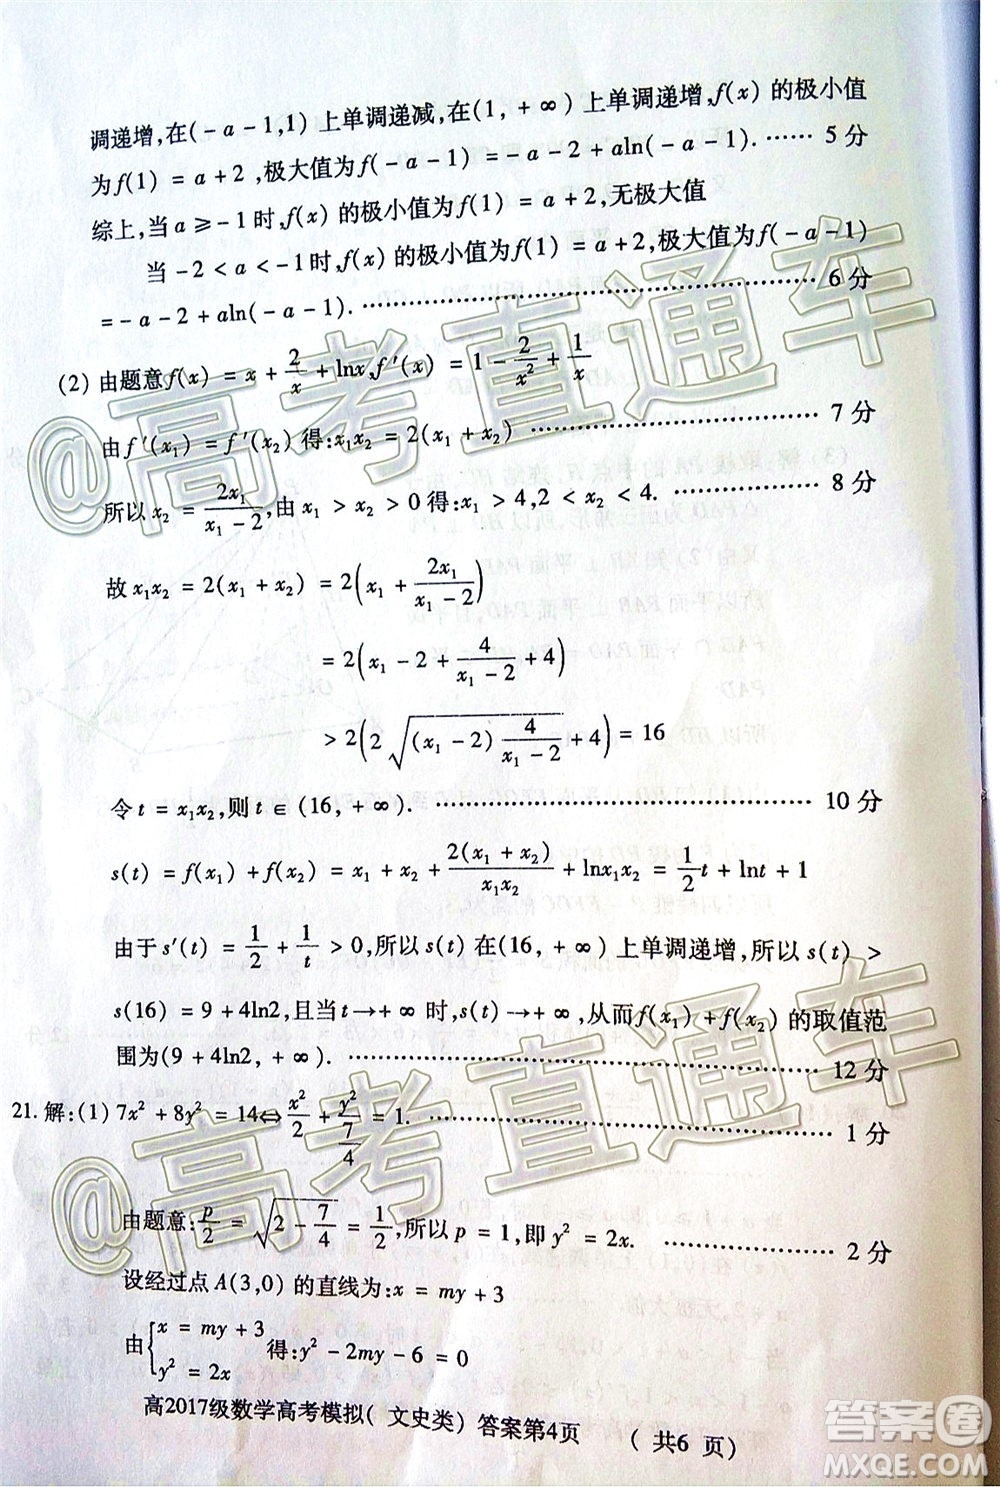 调递增,在(-a-1,1)上单调递减,在(1,+∞)上单调递增,f(x)的极小值
为f(1)=a+2,极大值为f(-a-1)=-a-2+aln(-a-1).……5分
综上,当a≥-1时,f(x)的极小值为f(1)=a+2,无极大值
当-2<a<-1时,f(x)的极小值为f(1)=a+2,极大值为f(-a-1)
=-a-2+aln(-a-1).……………………6分
(2)由题意f(x)=x+2/x+lnx,f'(x)=1-2/x²+1/x
由f'(x₁)=f'(x₂)得:x₁x₂=2(x₁+x₂)……………………7分
所以x₂=2x₁/(x₁-2),由x₁>x₂>0得:x₁>4,2<x₂<4.……………8分
故x₁x₂=2(x₁+x₂)=2(x₁+2x₁/(x₁-2))
=2(x₁-2+4/(x₁-2)+4)
>2(2√((x₁-2)4/(x₁-2))+4)=16
令t=x₁x₂,则t∈(16,+∞).……………………10分
s(t)=f(x₁)+f(x₂)=x₁+x₂+2(x₁+x₂)/x₁x₂+lnx₁x₂=1/2t+lnt+1
由于s'(t)=1/2+1/t>0,所以s(t)在(16,+∞)上单调递增,所以s(t)>
s(16)=9+4ln2,且当t→+∞时,s(t)→+∞,从而f(x₁)+f(x₂)的取值范
围为(9+4ln2,+∞).……………………12分
21.解:(1)7x²+8y²=14⇔x²/2+y²/(7/4)=1.……………………1分
由题意:p/2=√(2-7/4)=1/2,所以p=1,即y²=2x.……………2分
设经过点A(3,0)的直线为:x=my+3
由{x=my+3
y²=2x
得:y²-2my-6=0
高2017级数学高考模拟(文史类)答案第4页 (共6页)
@高考直通车
@高考直通车
答案圈
MXQE.COM